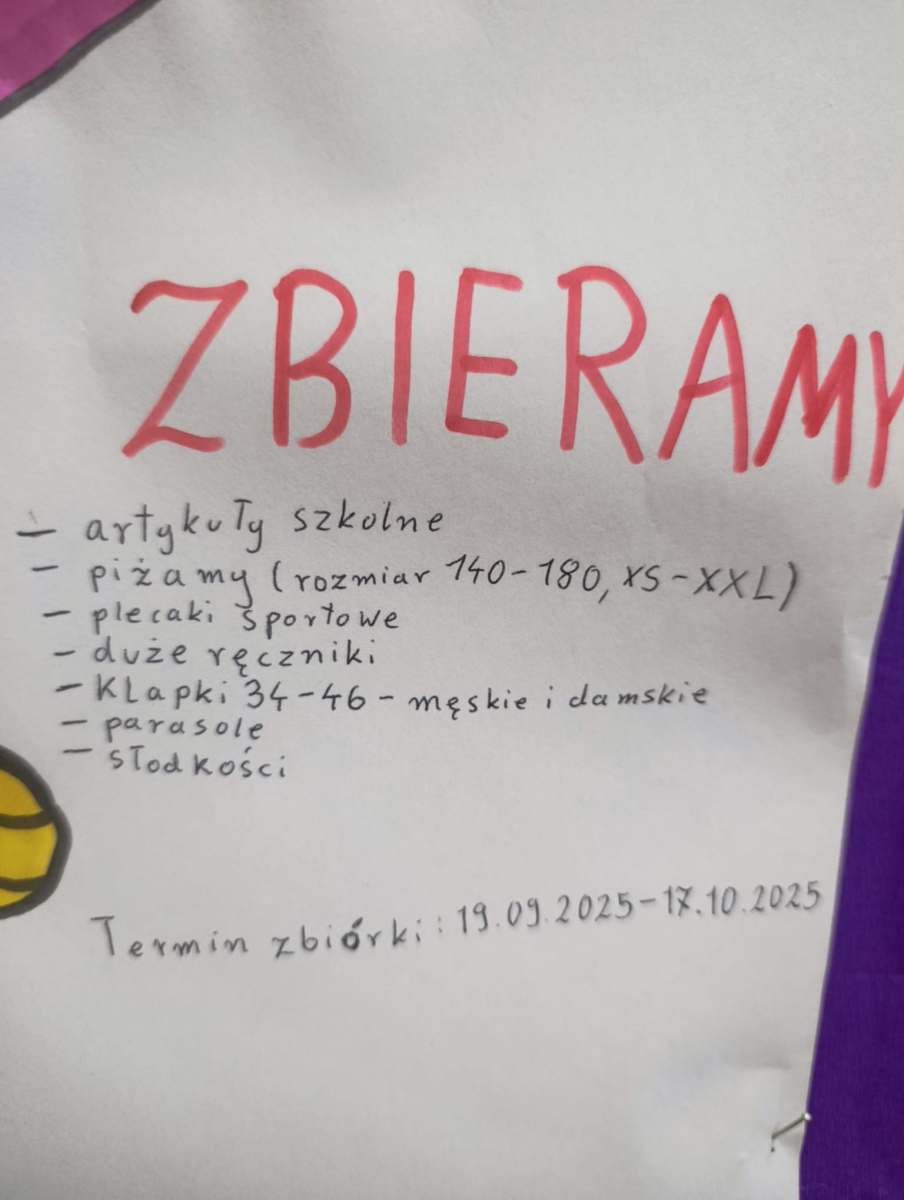 ZBIERAMY
- artykuły szkolne
- piżamy (rozmiar 140-180, XS-XXL)
- plecaki sportowe
- duże ręczniki
- Klapki 34-46 - męskie i damskie
- parasole
- słodkości
Termin zbiórki: 19.09.2025-17.10.2025